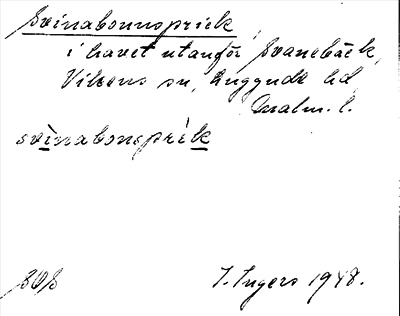 Svinabonnspriek,
i havet utanför Svanebäck,
Vikens sn, Luggude hd,
Malm. l.
svinabonsprik
I. Ingers 1948.